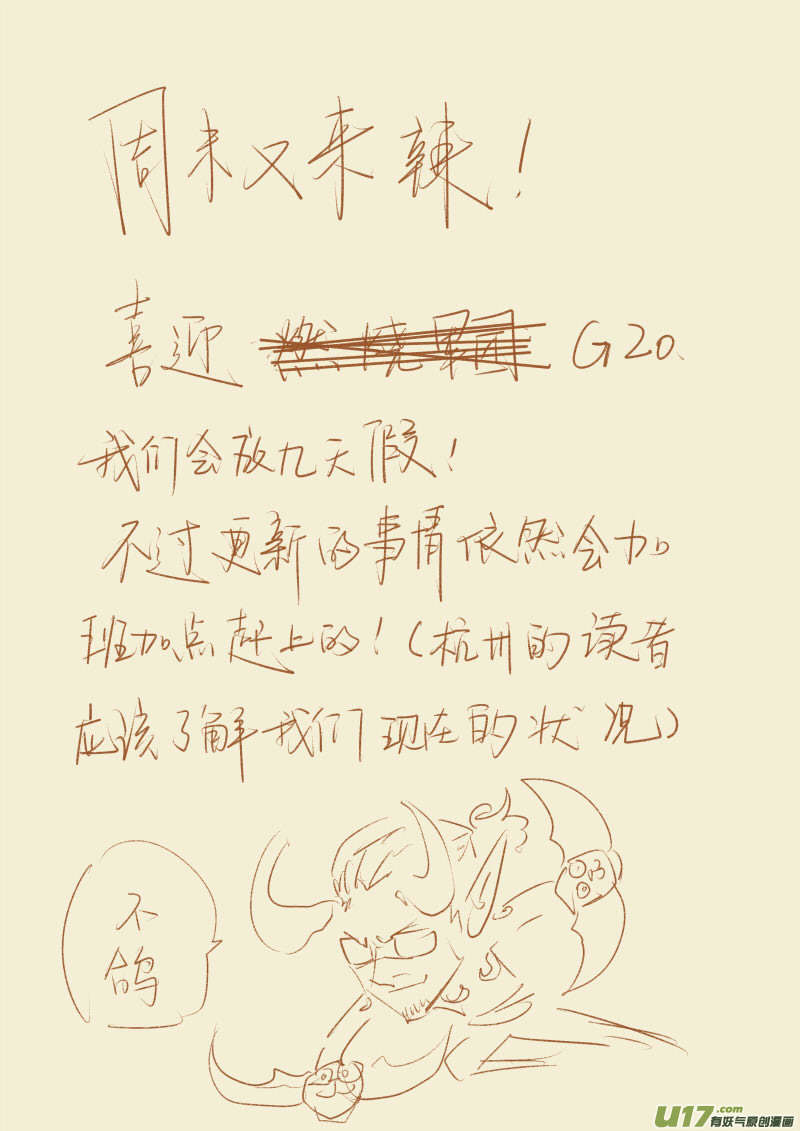 周末又来辣！
喜迎燃烧军团 G20、
我们会放九天假！
不过更新的事情依然会加
班加点赶上的！（杭州的读者
应该了解我们现在的状况）
不
鸽
U17.com
有妖气原创漫画